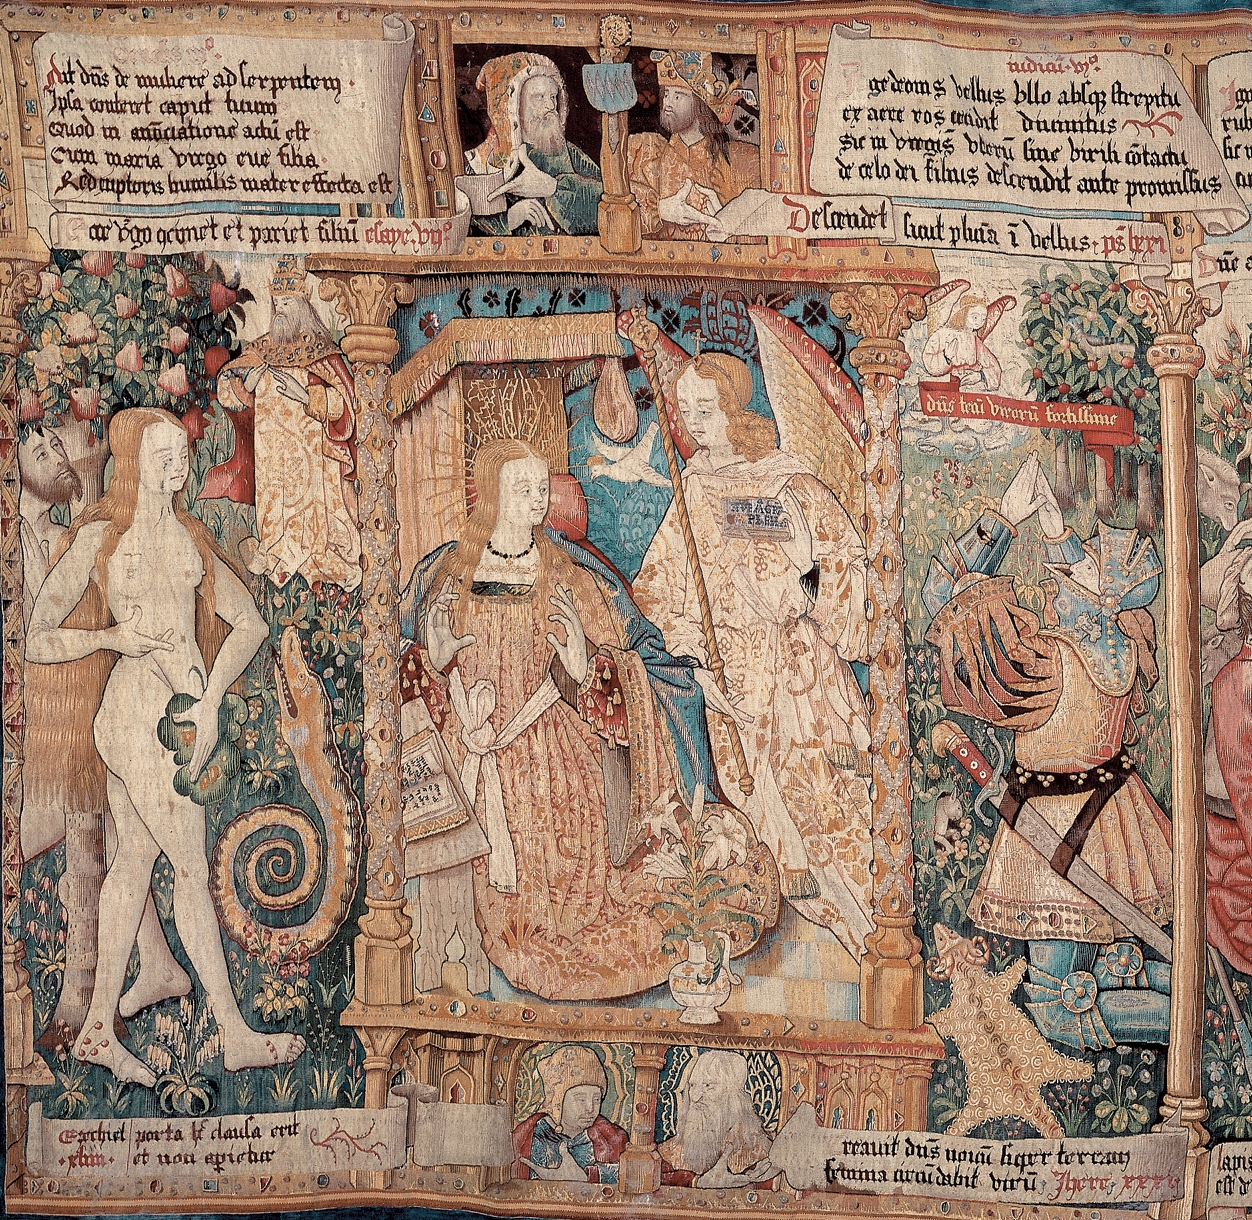 Ait dn̄s de muliere ad serpentem
Ipsa conteret caput tuum
Quod in an̄ūciatione actū est
Cum maria virgo eve filia
Redemptoris humilis mater effecta est
Ecce v̄go cōcipiet et pariet filiū esaye. vijº
iudicū vjº
gedeonis vellus vllo absq̨ strepitu
ex aere ros tendit divinitus
Sic in virgīs vterū sine virili cōtactu
de celo dei filius descendit ante promissus
Descendet sicut pluvia ī vellus. ps̄ lxxi
dn̄s tecū virorū fortissime
AVE GRA
PLENA
Ezechiel porta hec clausa erit
.xliiii. et non aperietur
reavit dn̄s novū super terram
femina circūdabit virū Jhere. xxxj
lapis